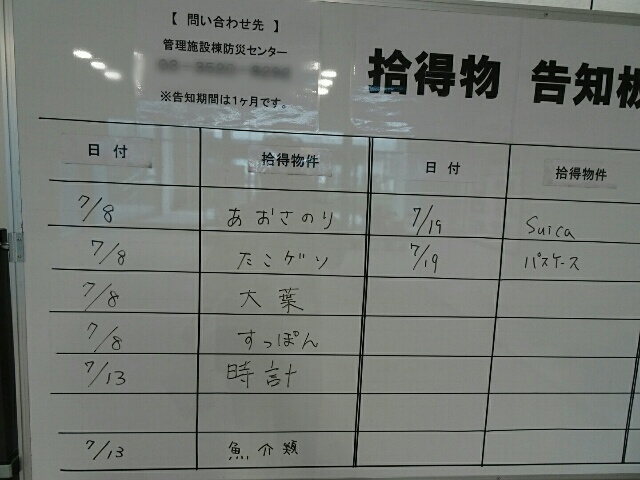 【 問い合わせ先 】
管理施設棟防災センター
※告知期間は1ヶ月です。
拾得物 告知板
日付 拾得物件 日付 拾得物件
7/8 あおさのり 7/19 Suica
7/8 たこゲソ 7/19 パスケース
7/8 大葉
7/8 すっぽん
7/13 時計
7/13 魚介類